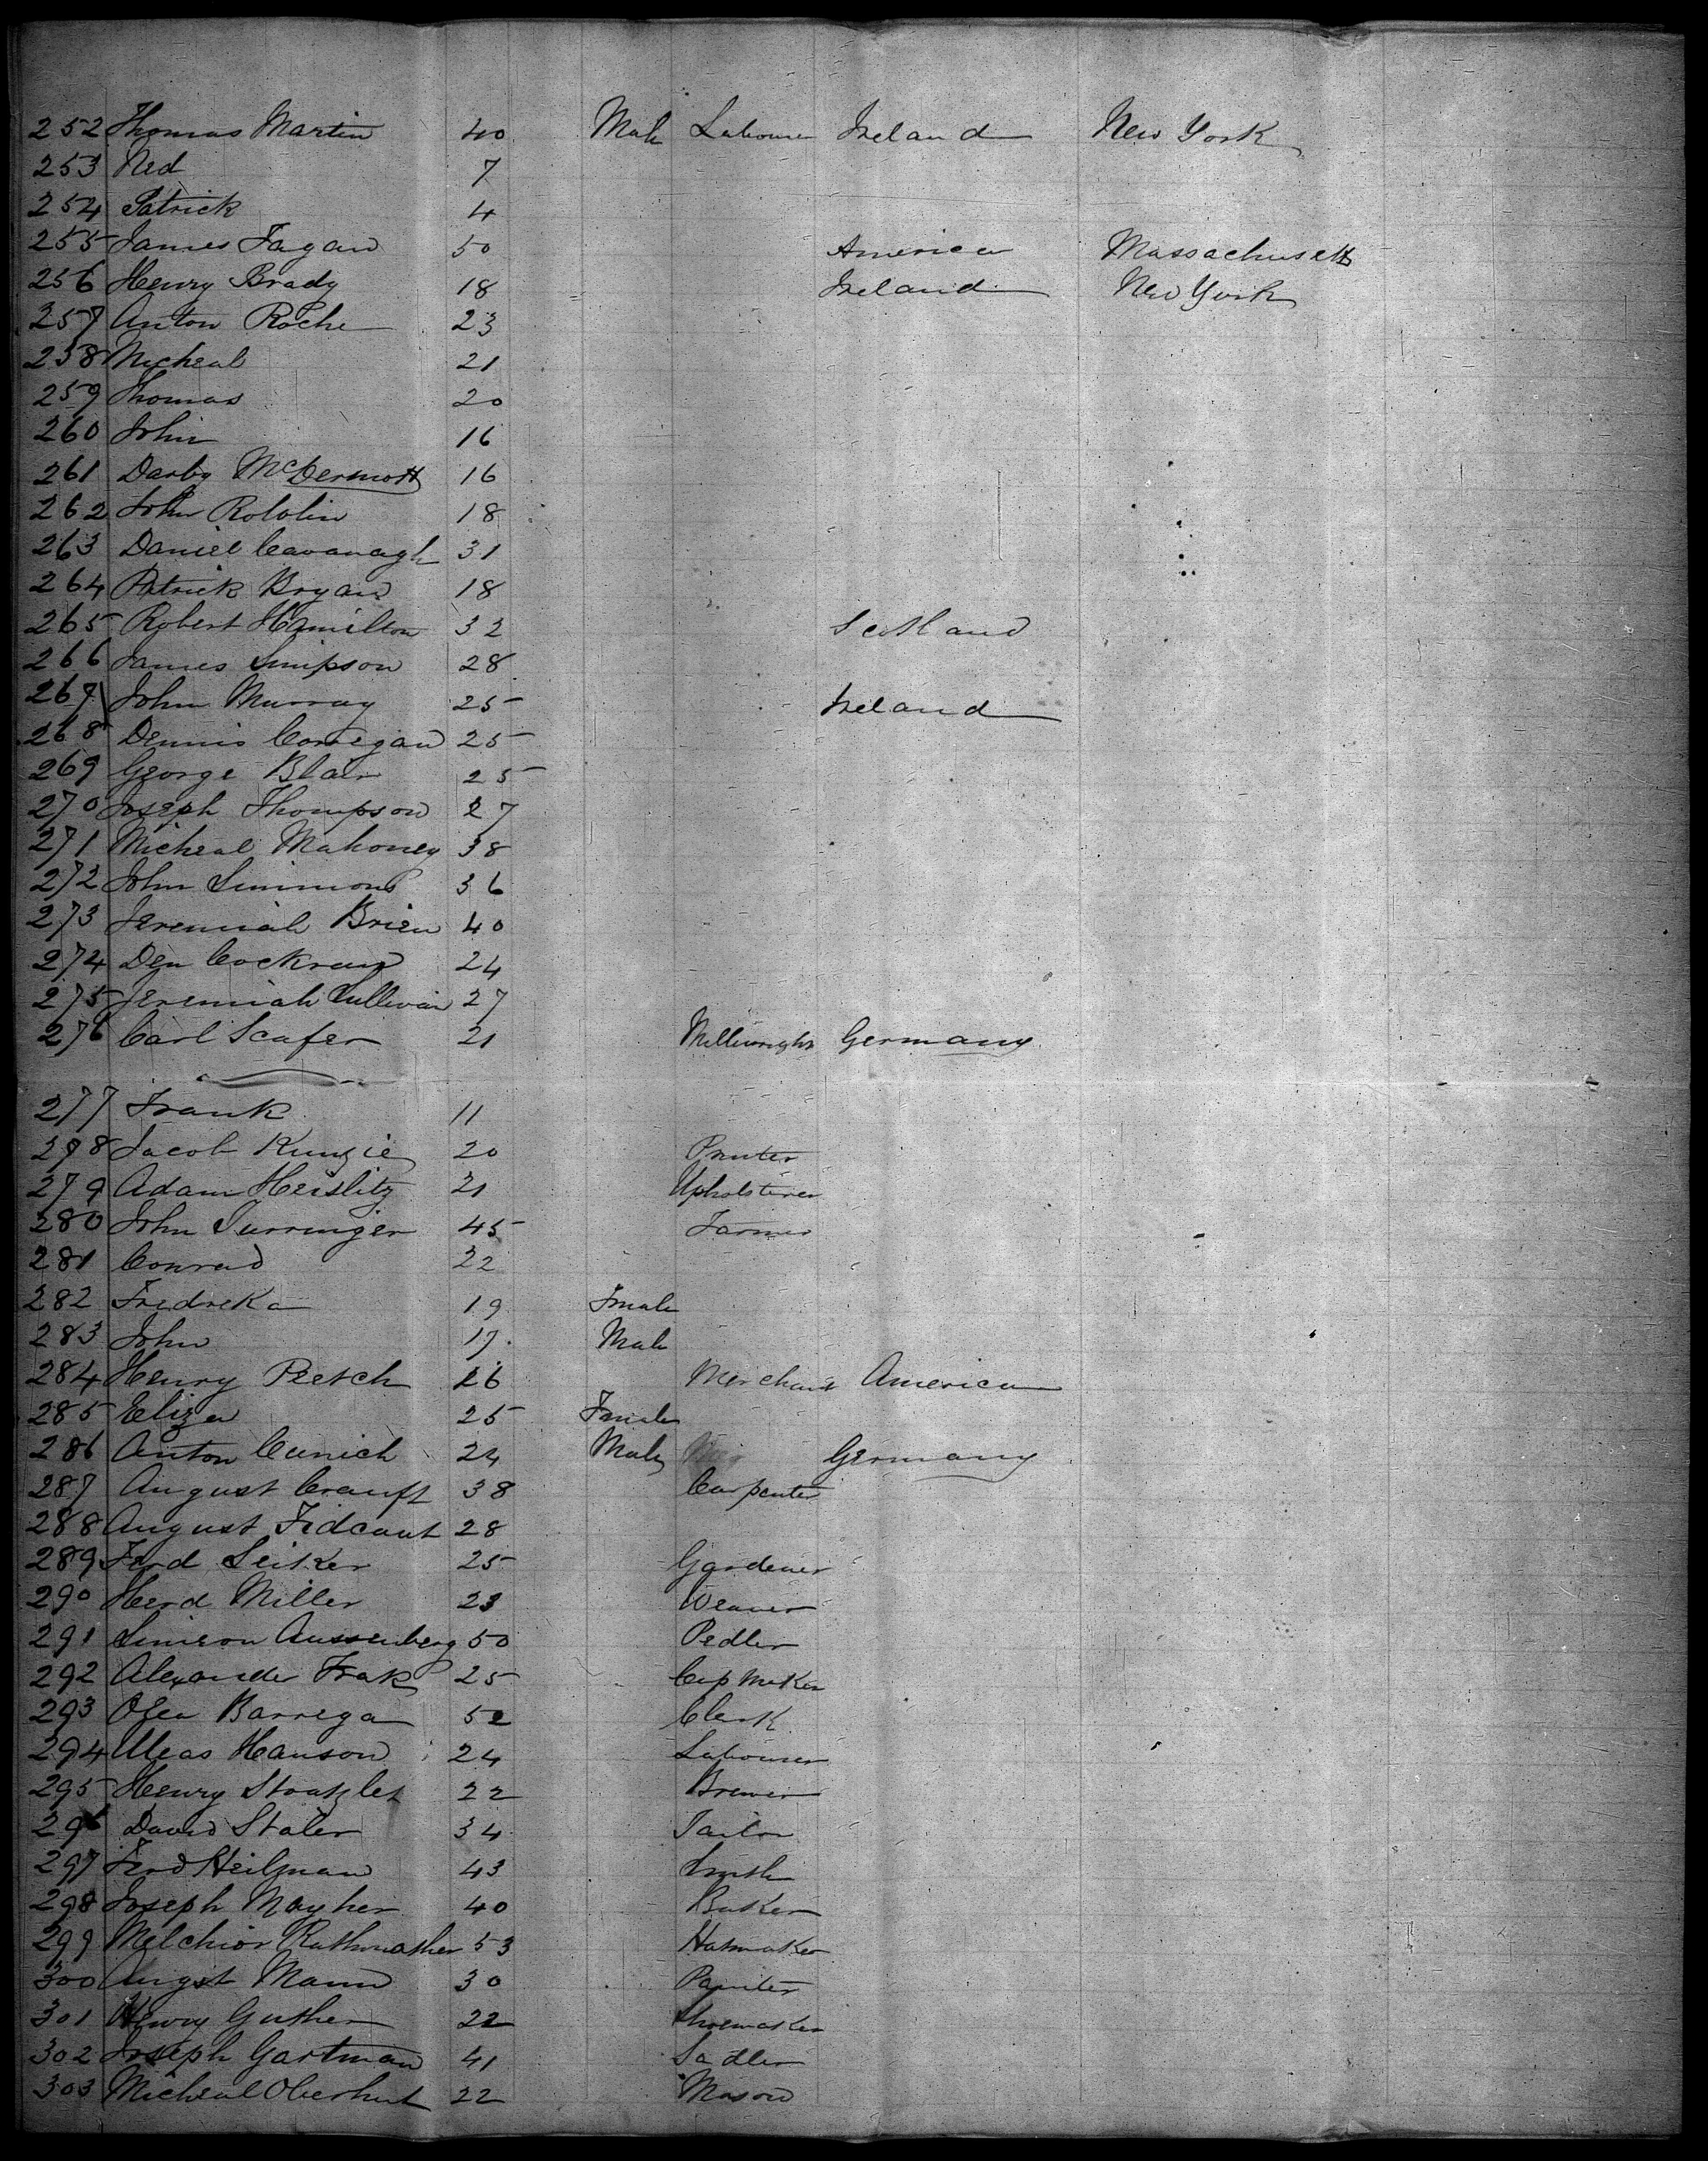 252 Thomas Martin 40 Male Labourer Ireland New York
253 Ned 7
254 Patrick 4
255 James Fagan 50 America Massachusetts
256 Henry Brady 18 Ireland New York
257 Anton Roche 23
258 Micheal 21
259 Thomas 20
260 John 16
261 Darby McDermott 16
262 John Roblin 18
263 Daniel Cavanagh 31
264 Patrick Bryan 18
265 Robert Hamilton 32 Scotland
266 James Simpson 28
267 John Murray 25 Ireland
268 Dennis Corregan 25
269 George Blair 25
270 Joseph Thompson 27
271 Micheal Mahoney 38
272 John Simmons 36
273 Jeremiah Brien 40
274 Den Cockran 24
275 Jeremiah Sullivan 27
276 Carl Scafer 21 Millwright Germany
277 Frank 11
278 Jacob Kunzie 20 Printer
279 Adam Heislitz 21 Upholsterer
280 John Turringer 45 Farmer
281 Conrad 22
282 Fredreka 19 Female
283 John 17 Male
284 Henry Peetch 26 Merchant America
285 Eliza 25 Female
286 Anton Cunich 24 Male Germany
287 August Crauft 38 Carpenter
288 August Fidcaut 28
289 Ferd Seiker 25 Gardener
290 Herd Miller 23 Weaver
291 Simeon Aussenberg 50 Pedler
292 Alexander Frak 25 Cap Maker
293 Barrega 52 Clerk
294 Hanson 24 Labourer
295 Henry 22 Brewer
296 David Staler 34 Tailor
297 Ferd Heilman 43 Smith
298 Joseph Mayher 40 Baker
299 Melchior 53 Hatmaker
300 Augst Mann 30 Painter
301 Henry Guther 22 Shoemaker
302 Joseph Gartman 41 Sadler
303 Micheal Oberhut 22 Mason